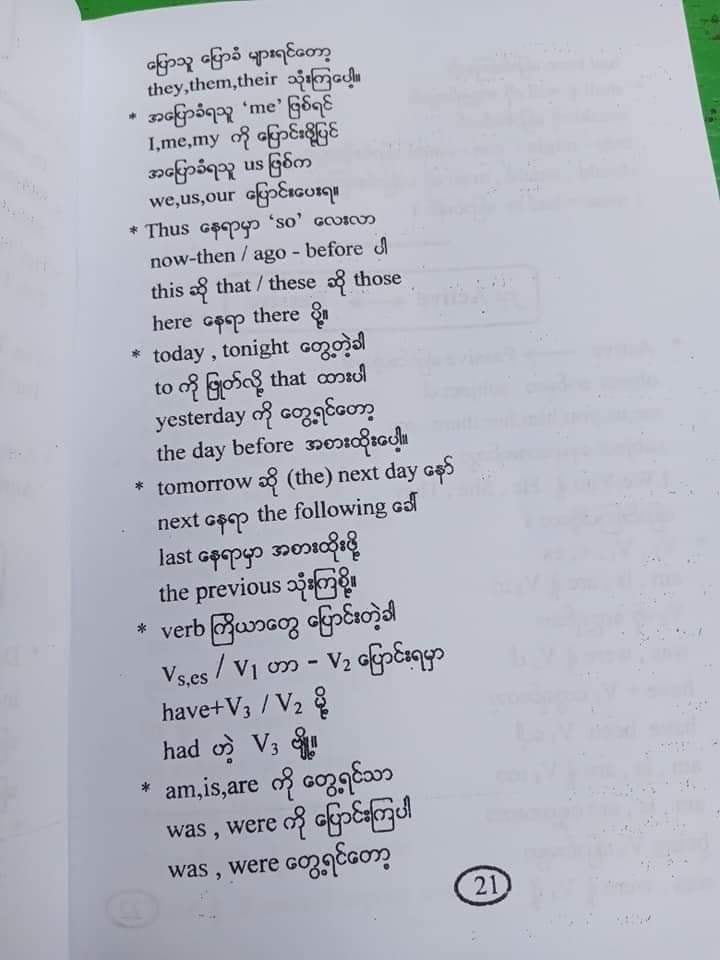 ပြောသူ ပြောခံ များရင်တော့
they,them,their သုံးကြပေါ့။
* အပြောခံရသူ ‘me’ ဖြစ်ရင်
I,me,my ကို ပြောင်းဖို့ပြင်
အပြောခံရသူ us ဖြစ်က
we,us,our ပြောင်းပေးရ။
* Thus နေရာမှာ ‘so’ လေးလာ
now-then / ago - before ပါ
this ဆို that / these ဆို those
here နေရာ there ပို့။
* today , tonight တွေ့တဲ့ခါ
to ကို ဖြုတ်လို့ that ထားပါ
yesterday ကို တွေ့ရင်တော့
the day before အစားထိုးပေါ့။
* tomorrow ဆို (the) next day နော်
next နေရာ the following ခေါ်
last နေရာမှာ အစားထိုးဖို့
the previous သုံးကြစို့။
* verb ကြိယာတွေ ပြောင်းတဲ့ခါ
Vs,es / V1 ဟာ – V2 ပြောင်းရမှာ
have+V3 / V2 မို့
had ဟဲ့ V3 ဗျို့။
* am,is,are ကို တွေ့ရင်သာ
was , were ကို ပြောင်းကြပါ
was , were တွေ့ရင်တော့
21